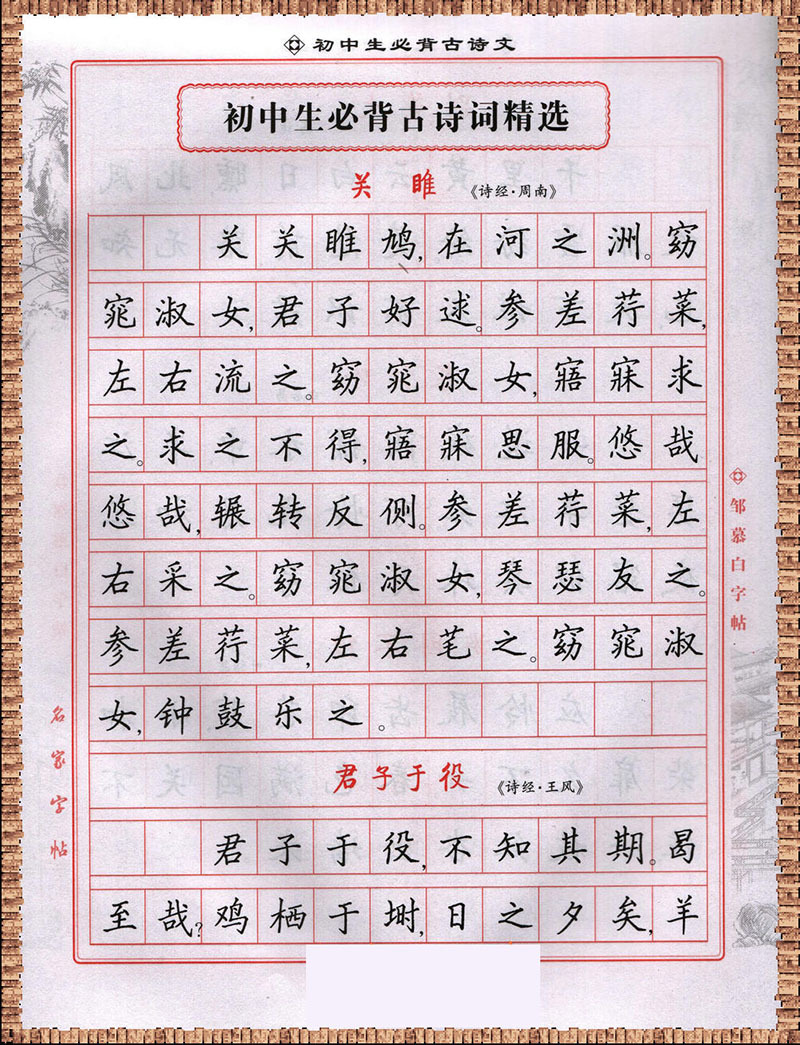 初中生必背古诗文
初中生必背古诗词精选
关雎 《诗经·周南》
关关雎鸠,在河之洲。窈
窕淑女,君子好逑。参差荇菜,
左右流之。窈窕淑女,寤寐求
之。求之不得,寤寐思服。悠哉
悠哉,辗转反侧。参差荇菜,左
右采之。窈窕淑女,琴瑟友之。
参差荇菜,左右芼之。窈窕淑
女,钟鼓乐之。
君子于役 《诗经·王风》
君子于役,不知其期。曷
至哉?鸡栖于埘,日之夕矣,羊
邹慕白字帖
名家字帖